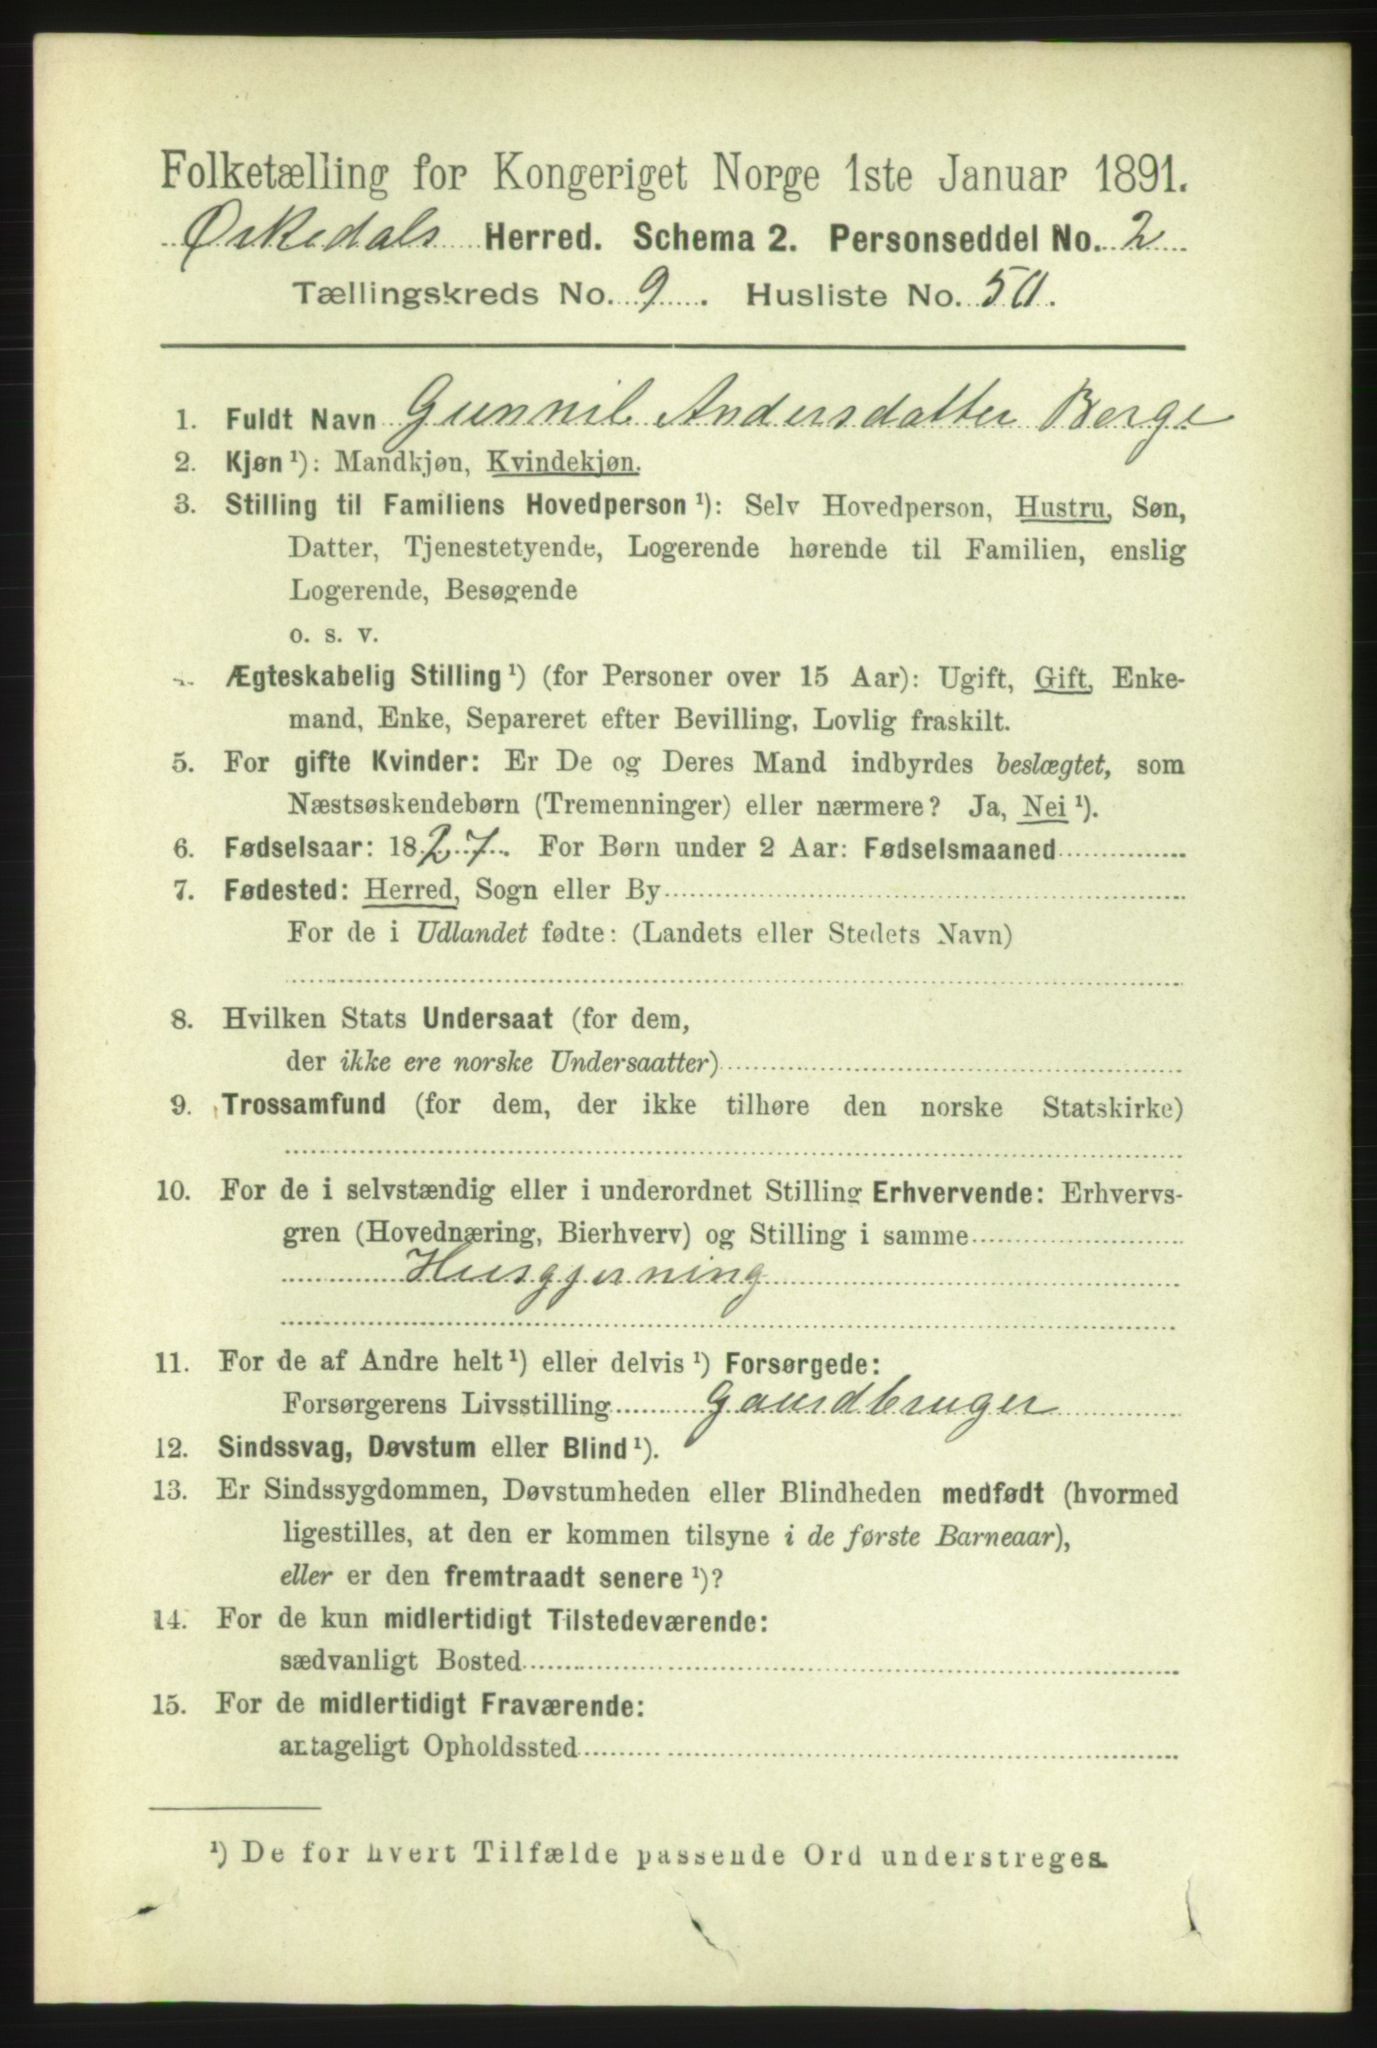 Folketælling for Kongeriget Norge 1ste Januar 1891.
Ørkedals Herred. Schema 2. Personseddel No. 2
Tællingskreds No. 9. Husliste No. 50.
1. Fuldt Navn Gunnil Andersdatter Berge
2. Kjøn ¹): Mandkjøn, Kvindekjøn.
3. Stilling til Familiens Hovedperson ¹): Selv Hovedperson, Hustru, Søn,
Datter, Tjenestetyende, Logerende hørende til Familien, enslig
Logerende, Besøgende
o. s. v.
Ægteskabelig Stilling ¹) (for Personer over 15 Aar): Ugift, Gift, Enke-
mand, Enke, Separeret efter Bevilling, Lovlig fraskilt.
5. For gifte Kvinder: Er De og Deres Mand indbyrdes beslægtet, som
Næstsøskendebørn (Tremenninger) eller nærmere? Ja, Nei ¹).
6. Fødselsaar: 1827. For Børn under 2 Aar: Fødselsmaaned
7. Fødested: Herred, Sogn eller By
For de i Udlandet fødte: (Landets eller Stedets Navn)
8. Hvilken Stats Undersaat (for dem,
der ikke ere norske Undersaatter)
9. Trossamfund (for dem, der ikke tilhøre den norske Statskirke)
10. For de i selvstændig eller i underordnet Stilling Erhvervende: Erhvervs-
gren (Hovednæring, Bierhverv) og Stilling i samme
Husgjerning
11. For de af Andre helt ¹) eller delvis ¹) Forsørgede:
Forsørgerens Livsstilling Gaardbruger
12. Sindssvag, Døvstum eller Blind ¹).
13. Er Sindssygdommen, Døvstumheden eller Blindheden medfødt (hvormed
ligestilles, at den er kommen tilsyne i de første Barneaar),
eller er den fremtraadt senere ¹)?
14. For de kun midlertidigt Tilstedeværende:
sædvanligt Bosted
15. For de midlertidigt Fraværende:
antageligt Opholdssted
¹) De for hvert Tilfælde passende Ord understreges.